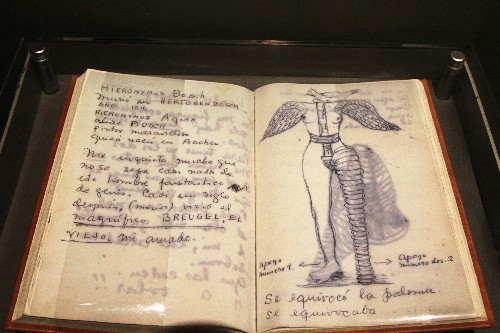 HIERONYMUS Bosch
murió en HERTOGENBOSCH
AÑO 1516
HIERONYMUS Aquen
alias BOSCH
Pintor maravilloso
quizá nació en Aachen.
Me inquieta mucho que
no se sepa casi nada de
este hombre fantástico
de genio. Casi un siglo
después, (menos) vivió el
magnífico BREUGEL EL
VIEJO, mi amado.
Apoyo
número 1.
Apoyo
número dos. 2
Se equivocó la paloma.
Se equivocaba...